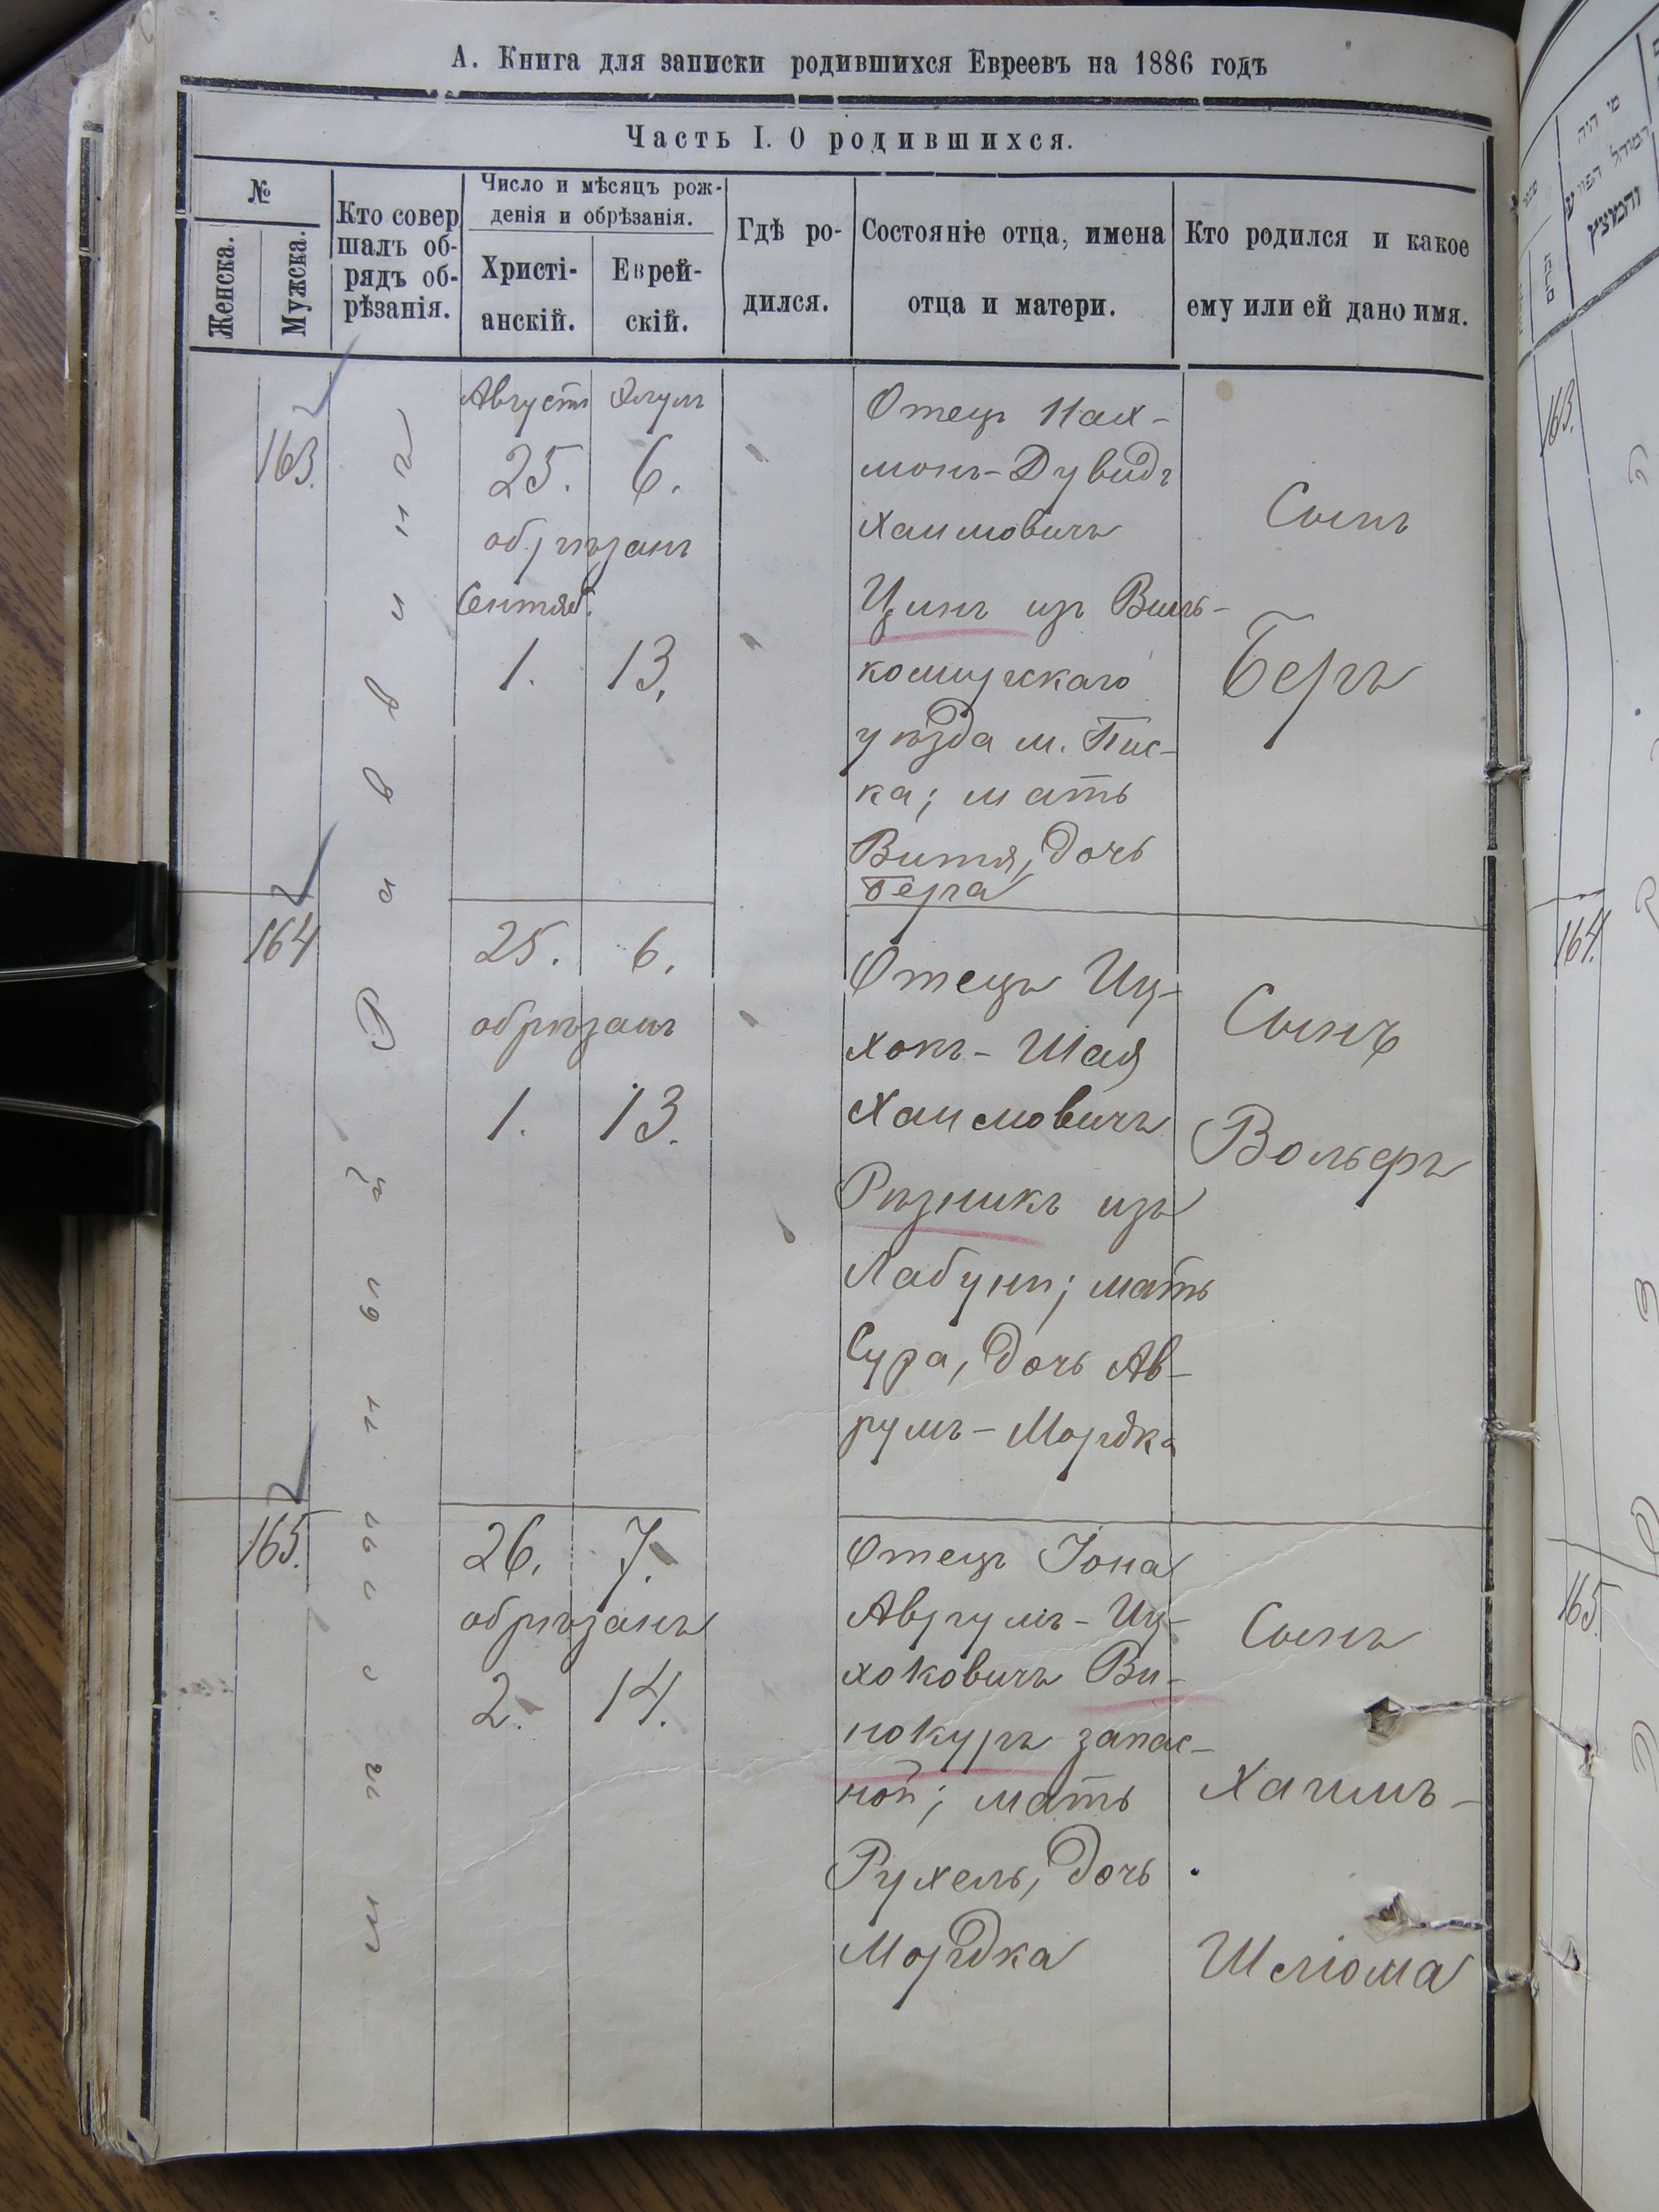 А. Книга для записки родившихся Евреевъ на 1886 годъ
Часть I. О родившихся.
№
Женска.
Мужска.
Кто совер
шалъ об-
рядъ об-
рѣзанія.
Число и мѣсяцъ рож-
денія и обрѣзанія.
Христі-
анскій.
Еврей-
скій.
Гдѣ ро-
дился.
Состояніе отца, имена
отца и матери.
Кто родился и какое
ему или ей дано имя.
163.
Августъ Элулъ
25. 6.
обрѣзанъ
Сентяб.
1. 13.
Отецъ Нах-
монъ-Дувидъ
Хаимовичъ
Цинъ изъ Виль-
комирскаго
уѣзда м.
ка; мать
Витя, дочь
Берга
Сынъ
Беръ
164
25. 6.
обрѣзанъ
1. 13.
Отецъ Иц-
хокъ-Шая
Хаимовичъ
Рѣзникъ изъ
Лабуни; мать
Сура, дочь Ав-
румъ-Мордка
Сынъ
Вольфъ
165.
26. 7.
обрѣзанъ
2. 14.
Отецъ Іона
Аврумъ-Иц-
хоковичъ Ви-
нокуръ запас-
ной; мать
Рухель, дочь
Мордка
Сынъ
Хаимъ-
Шліома
Раввинъ
מי היה
המוהל
והמוצץ
163.
164.
165.